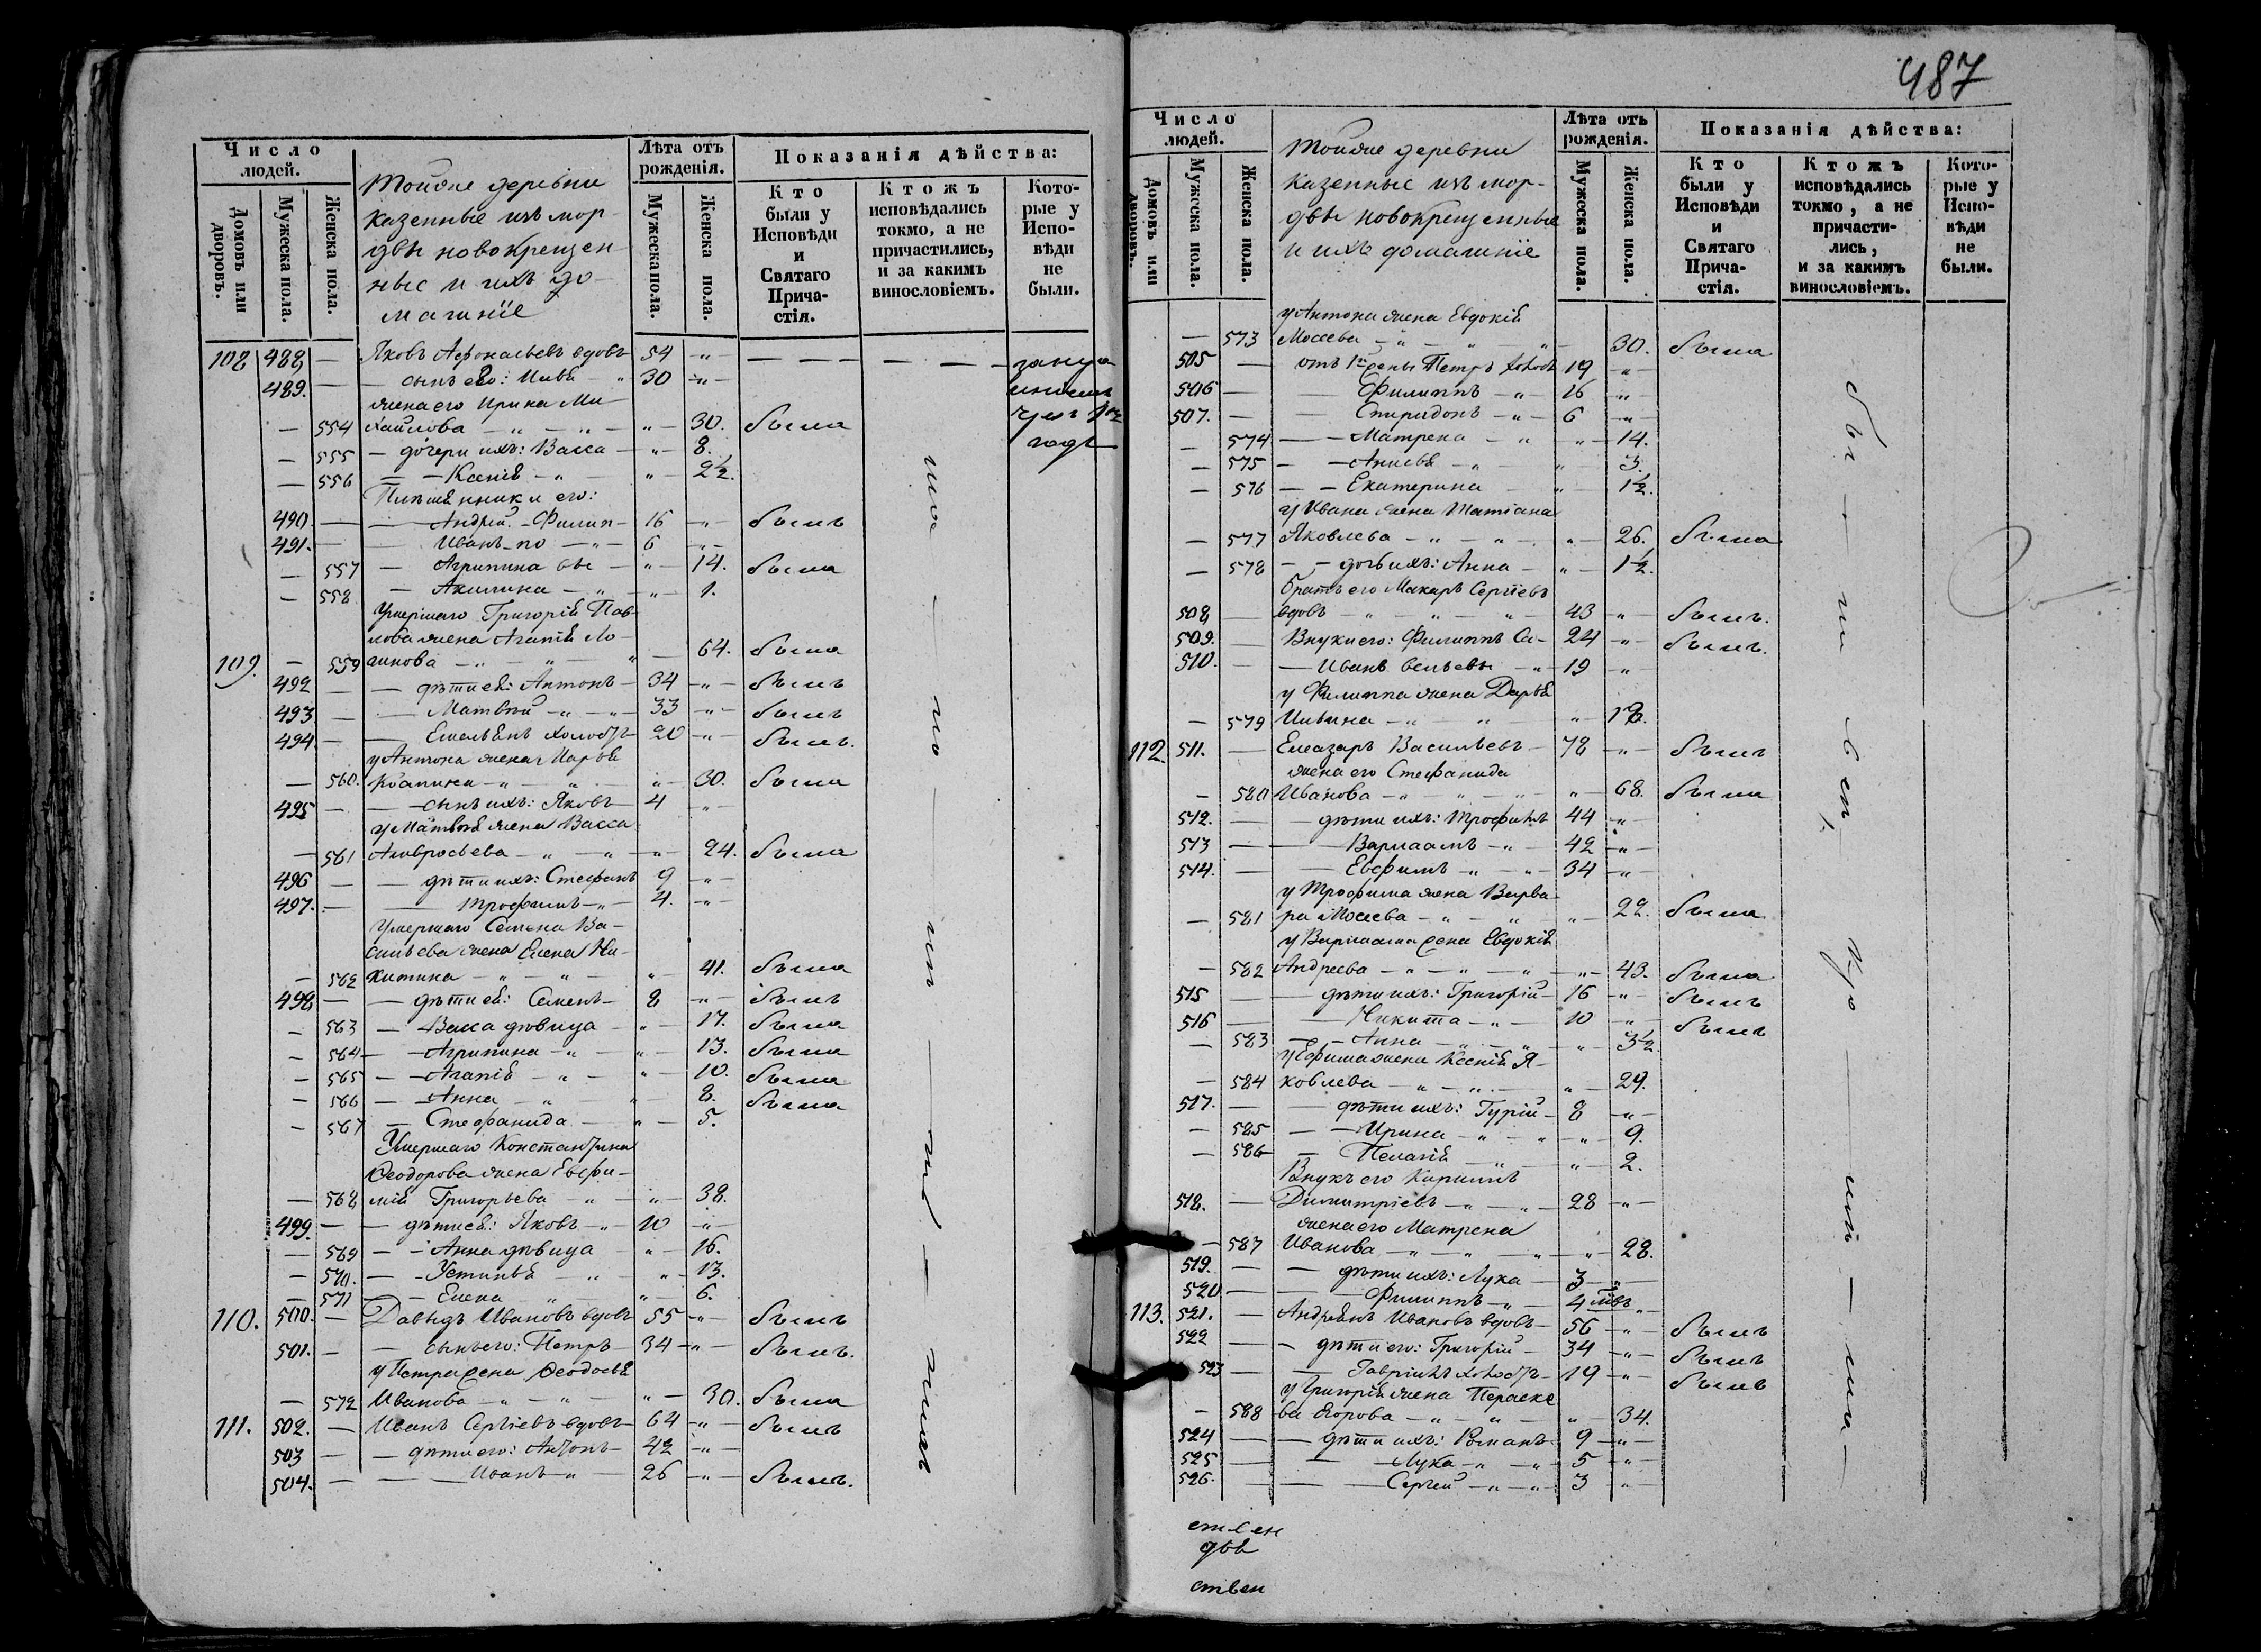 Число людей.
Домовъ или дворовъ.
Мужеска пола.
Женска пола.
Тойже деревни
казенные изъ мор-
двы новокрещен-
ные и ихъ до-
машніе
Лѣта отъ рожденія.
Мужеска пола.
Женска пола.
Показанія дѣйства:
Кто были у Исповѣди и Святаго Прича- стія.
Ктожъ исповѣдались токмо, а не причастились, и за какимъ винословіемъ.
Кото- рые у Испо- вѣди не были.
108 488 — Яковъ Афонасьевъ вдовъ 54 „ —
489. — сынъ его: 30 „
жена его Ирина Ми-
— 554 хайлова — „ — „ — 30. была
— 555 — дочери ихъ: Васса — „ — 8.
— 556 — Ксенія — „ — „ — 2½.
Племянники его:
490. — Андрей Филип- 16 — „ — былъ
491. — Иванъ — по — „ — 6 „ —
— 557 — Агрипина вы — „ — 14. была
— 558 — Акилина — „ — „ — 1.
Умершаго Григорія Пав-
лова жена Агапія Ло-
109. — 559 гинова — „ — „ — 64. была
492 — дѣти ея: Антонъ — 34 — „ — былъ
493 — Матвѣй — „ — „ — 33 — „ — былъ
494 — Емельянъ холостъ 20 — „ — былъ.
у Антона жена Марья
— 560. — „ — „ — 30. была
495 — сынъ ихъ: Яковъ 4 „ —
у Матвѣя жена Васса
— 561 Амвросьева — „ — „ — „ — 24. была
496 — дѣти ихъ: Стефанъ 9 — „ —
497. — Трофимъ — „ — 4. — „ —
Умершаго Семена Ва-
сильева жена Елена Ни-
— 562 китина — „ — „ — „ — 41. была
498 — дѣти ея: Семенъ — 8 „ — былъ
— 563 — Васса дѣвица — „ — 17. была
— 564 — Агрипина — „ — „ — 13. была
— 565 — Агапія — „ — „ — 10. была
— 566 — Анна — „ — „ — 8. была
— 567 — Стефанида — „ — 5.
Умершаго Константина
Ѳеодорова жена Евфи-
— 568 мія Григорьева — „ — „ — 38.
499. — дѣти ея: Яковъ — „ — 10 — „ —
— 569 — Анна дѣвица — „ — 16.
— 570. — Устинья — „ — „ — 13.
— 571 — Елена — „ — „ — 6.
110. 500. — Давыдъ Ивановъ вдовъ 55 — „ — былъ
501. — сынъ его: Петръ — 34 — „ — былъ.
у Петра жена Ѳеодосья
— 572 Иванова — „ — „ — „ — 30. была
111. 502. — Иванъ Сергіевъ вдовъ 64 — „ — былъ
503 — дѣти его: Антонъ — 42 — „ —
504. — Иванъ — „ — 26 — „ — былъ.
487
Число людей.
Домовъ или дворовъ.
Мужеска пола.
Женска пола.
Тойже деревни
казенные изъ мор-
двы новокрещенные
и ихъ домашніе
Лѣта отъ рожденія.
Мужеска пола.
Женска пола.
Показанія дѣйства:
Кто были у Исповѣди и Святаго Прича- стія.
Ктожъ исповѣдались токмо, а не причасти- лись, и за какимъ винословіемъ.
Кото- рые у Испо- вѣди не были.
у Антона жена Евдокія
— 573 Мосеева — „ — „ — „ — 30. была
505 — отъ 1й жены Петръ холост 19 — „ —
506 — Филиппъ — „ — 16 „ —
507. — Спиридонъ — „ — 6 „ —
— 574 — Матрена — „ — „ — 14.
— 575 — Анисья — „ — „ — 3.
— 576 — Екатерина — „ — 1½.
у Ивана жена Татіана
— 577 Яковлева — „ — „ — „ — 26. была
— 578 — дочь ихъ: Анна — „ — 1½.
братъ его Макаръ Сергіевъ
508 вдовъ — „ — „ — 43 — „ — былъ.
509. — Внуки его: Филиппъ Са- 24 — „ — былъ.
510. — Иванъ вельевы — „ 19 — „
у Филиппа жена Дарья
— 579 — „ — „ — „ —
112 511. — Елеазаръ Васильевъ — 78 — „ — былъ
жена его Стефанида
— 580 Иванова — „ — „ — „ — 68. была
512. — дѣти ихъ: Трофимъ 44 — „ —
513 — Варлаамъ — „ — 42 — „ —
514. — Евфимъ — „ — „ — 34 — „ —
у Трофима жена Варва-
— 581 ра Мосеева — „ — „ — „ — 22. была
у Варлаама жена Евдокія
— 582 Андреева — „ — „ — „ — 43. была
515 — дѣти ихъ: Григорій — 16 — „ — былъ
516 — Никита — „ — 10 — „ — былъ
— 583 — Анна — „ — „ — 3½
у Ефима жена Ксенія Я-
— 584 ковлева — „ — „ — „ — 29.
517. — дѣти ихъ: Гурій — 8 — „ —
— 585 — Ирина — „ — „ — 9.
— 586 — Пелагія — „ — „ — 2.
Внукъ его Кириллъ
518. — Димитріевъ — „ — 28 — „ —
жена его Матрена
— 587 Иванова — „ — „ — „ — 28.
519. — дѣти ихъ: Лука — 3 — „ —
520 — Филиппъ — „ — 4
113. 521. — Андреянъ Ивановъ вдовъ — 56 — „ — былъ
522 — дѣти его: Григорій — 34 — „ — былъ
523 — Гавріилъ холостъ — 19 — „ — былъ
у Григорія жена Параске-
— 588 ва Егорова — „ — „ — „ — 34.
524 — дѣти ихъ: Романъ 9 — „ —
525 — Лука — „ — „ — 5 — „ —
526. — Сергѣй — „ — „ — 3 „ —